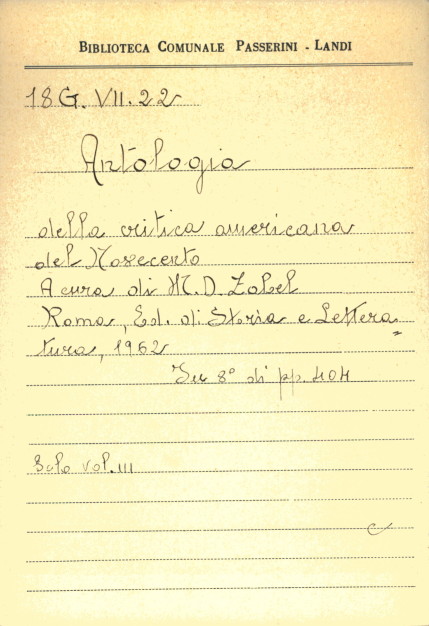 BIBLIOTECA COMUNALE PASSERINI - LANDI
18 G. VII. 22
Antologia
della critica americana
del Novecento
A cura di M. D. Zobel
Roma, Ed. di Storia e Lettera=
tura, 1962
In 8° di pp. 404
Solo vol. III
c